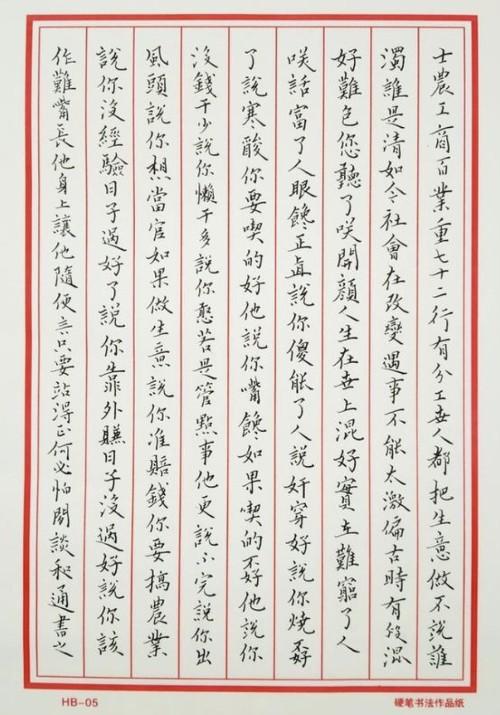 士農工商百業重七十二行有分工世人都把生意做不說誰
濁誰是清如今社會在改變遇事不能太激偏古時有句混
好難包您聽了咲開顏人生在世上混好實在難窮了人
咲話富了人眼饞正直說你傻能了人說奸穿好說你燒孬
了說寒酸你要喫的好他說你嘴饞如果喫的孬他說你
沒錢干少說你懶干多說你憨若是管點事他更說不完說你出
風頭說你想當官如果做生意說你准賠錢你要搞農業
說你沒經驗日子過好了說你靠外賺日子沒過好說你該
作難嘴長他身上讓他隨便言只要站得正何必怕閑談和通書之
HB-05
硬笔书法作品纸